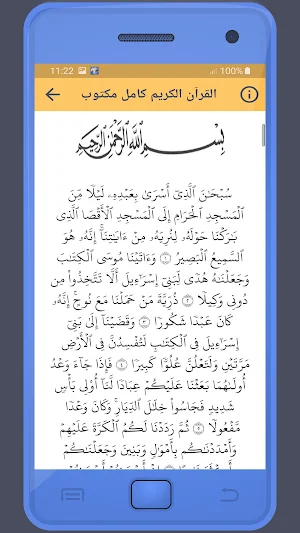 11:22
100%
القرآن الكريم كامل مكتوب
بِسْمِ ٱللَّهِ ٱلرَّحْمَٰنِ ٱلرَّحِيمِ
سُبْحَٰنَ ٱلَّذِىٓ أَسْرَىٰ بِعَبْدِهِۦ لَيْلًا مِّنَ
ٱلْمَسْجِدِ ٱلْحَرَامِ إِلَى ٱلْمَسْجِدِ ٱلْأَقْصَا ٱلَّذِى
بَٰرَكْنَا حَوْلَهُۥ لِنُرِيَهُۥ مِنْ ءَايَٰتِنَآ إِنَّهُۥ هُوَ
ٱلسَّمِيعُ ٱلْبَصِيرُ ١ وَءَاتَيْنَا مُوسَى ٱلْكِتَٰبَ
وَجَعَلْنَٰهُ هُدًى لِّبَنِىٓ إِسْرَٰٓءِيلَ أَلَّا تَتَّخِذُوا۟ مِن
دُونِى وَكِيلًا ٢ ذُرِّيَّةَ مَنْ حَمَلْنَا مَعَ نُوحٍ إِنَّهُۥ
كَانَ عَبْدًا شَكُورًا ٣ وَقَضَيْنَآ إِلَىٰ بَنِىٓ
إِسْرَٰٓءِيلَ فِى ٱلْكِتَٰبِ لَتُفْسِدُنَّ فِى ٱلْأَرْضِ
مَرَّتَيْنِ وَلَتَعْلُنَّ عُلُوًّا كَبِيرًا ٤ فَإِذَا جَآءَ وَعْدُ
أُولَىٰهُمَا بَعَثْنَا عَلَيْكُمْ عِبَادًا لَّنَآ أُو۟لِى بَأْسٍ
شَدِيدٍ فَجَاسُوا۟ خِلَٰلَ ٱلدِّيَارِ وَكَانَ وَعْدًا
مَّفْعُولًا ٥ ثُمَّ رَدَدْنَا لَكُمُ ٱلْكَرَّةَ عَلَيْهِمْ
وَأَمْدَدْنَٰكُم بِأَمْوَٰلٍ وَبَنِينَ وَجَعَلْنَٰكُمْ